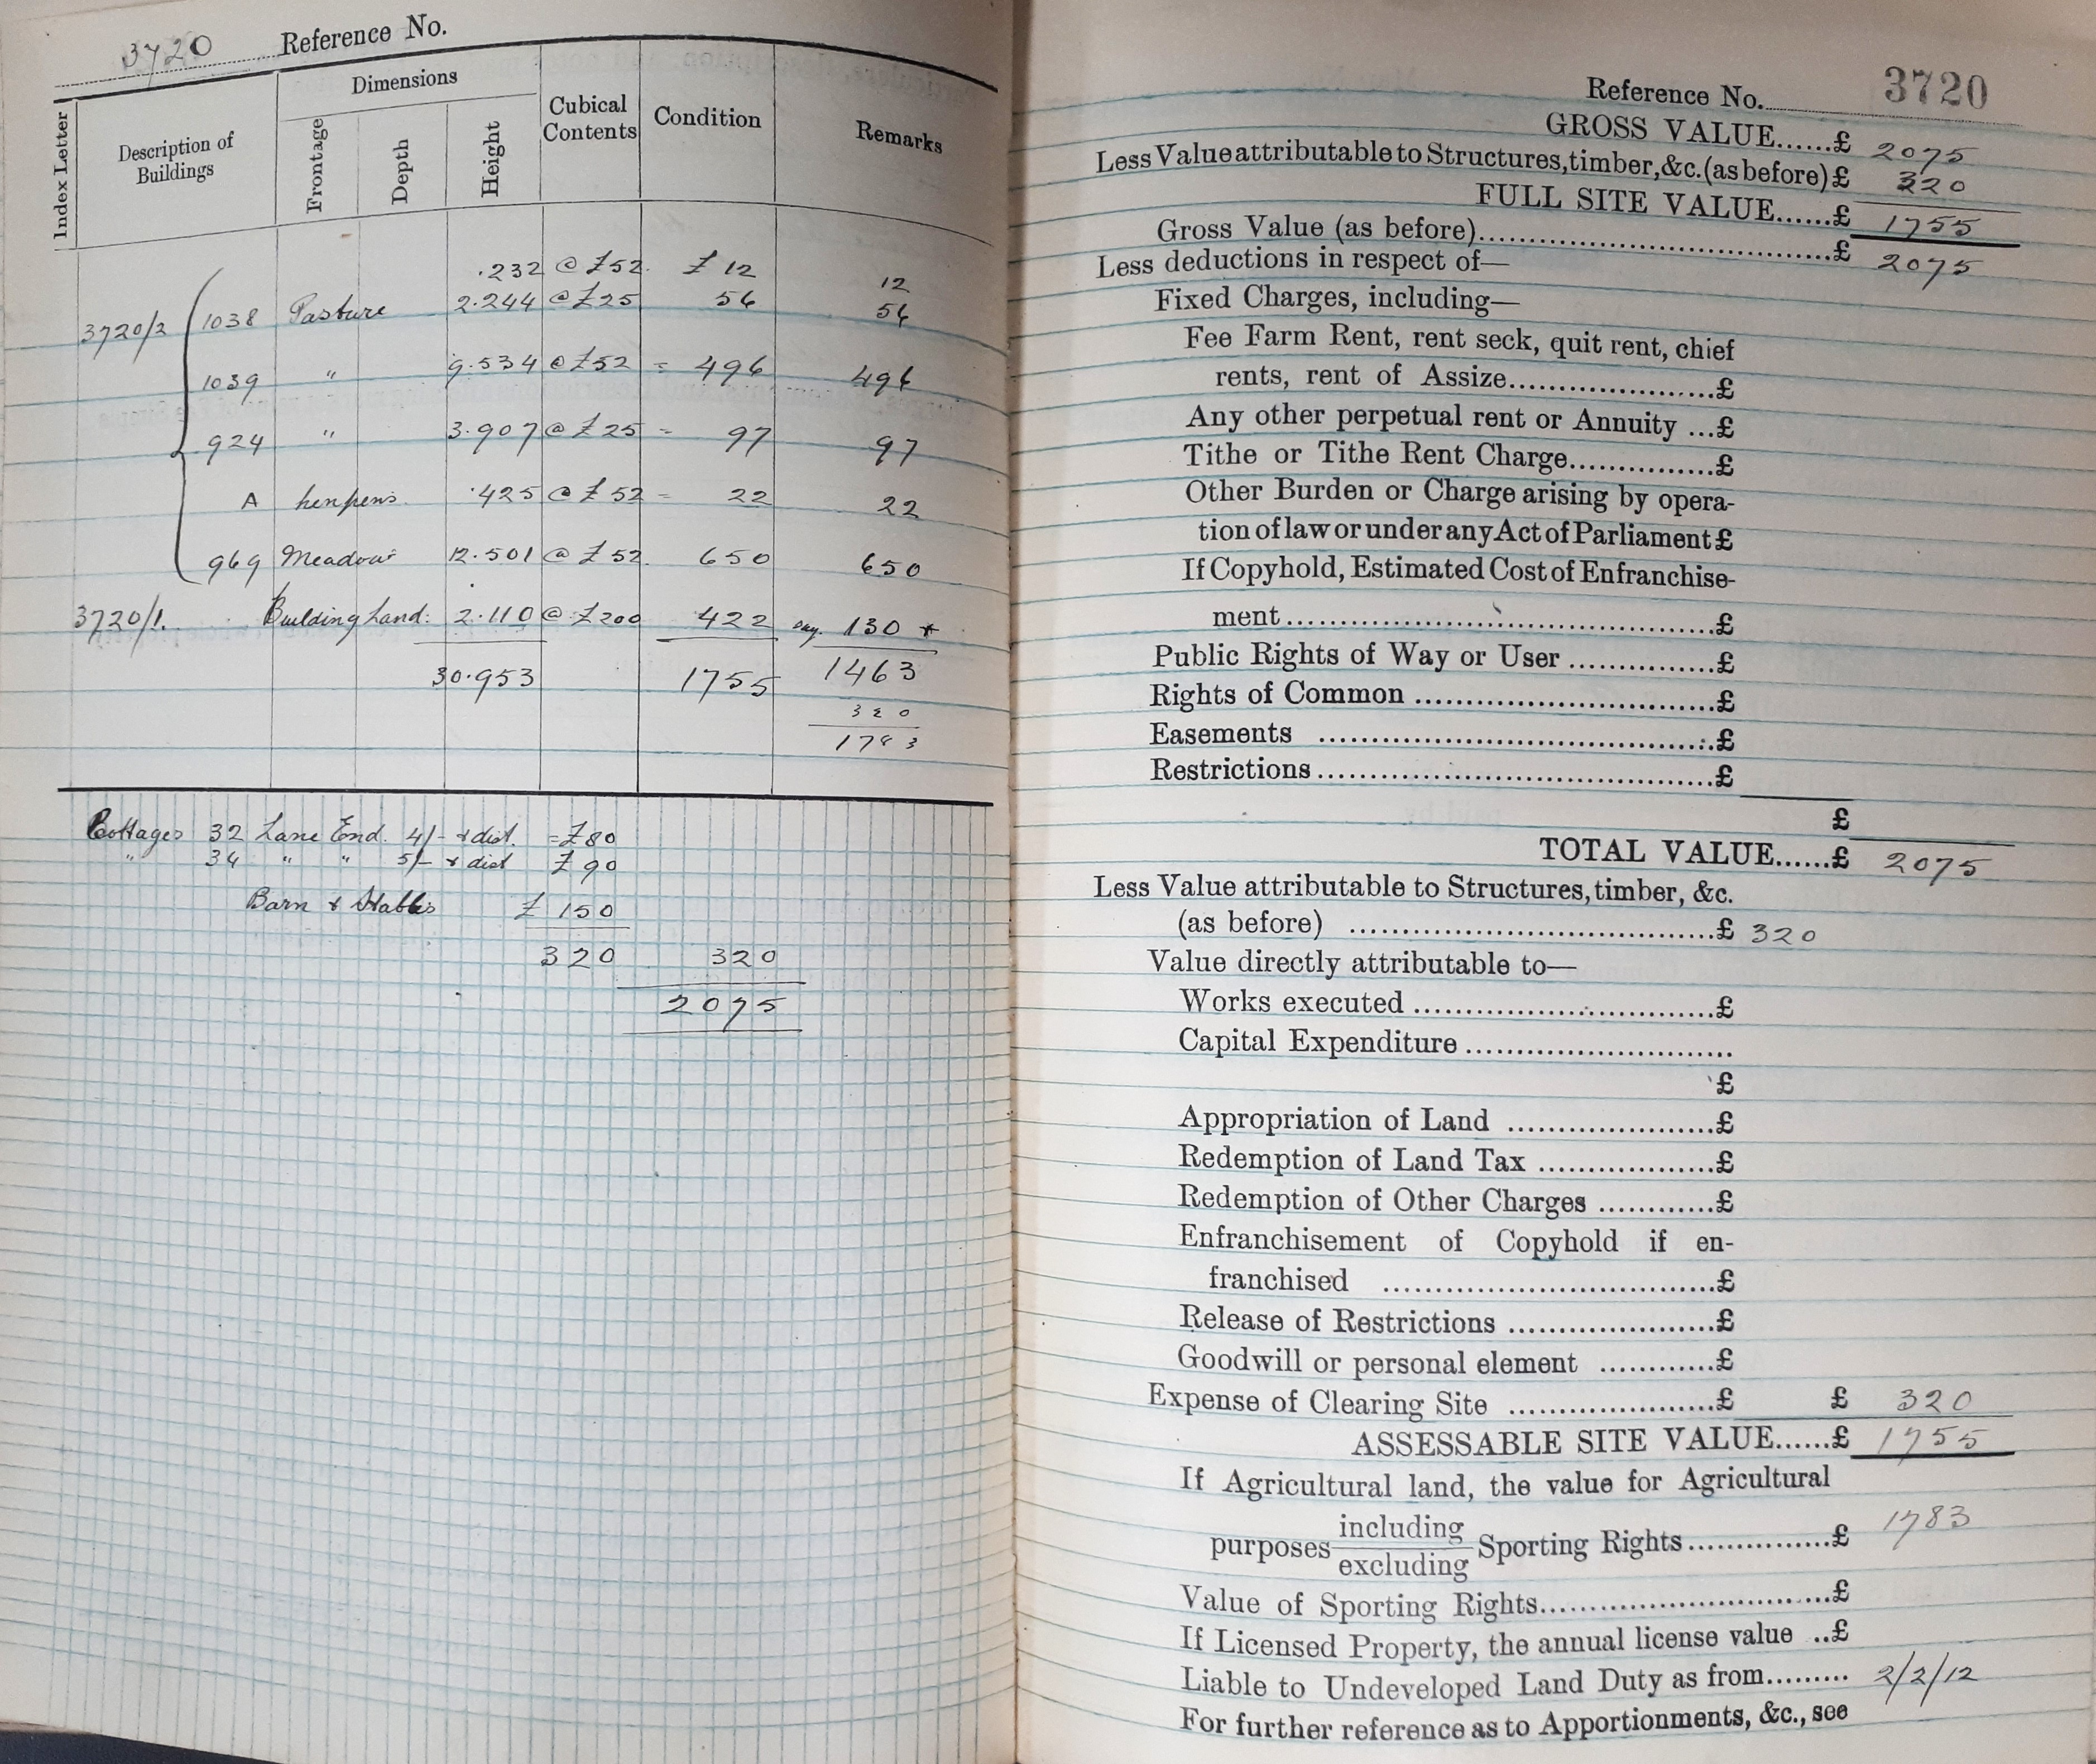 3720 Reference No.
Index Letter
Description of Buildings
Dimensions
Frontage
Depth
Height
Cubical Contents
Condition
Remarks
.232 @ £52. £ 12 12
3720/2 1038 Pasture 2.244 @ £25 56 56
1039 " 9.534 @ £52 = 496 496
924 " 3.907 @ £25 - 97 97
A henpens. .425 @ £52 = 22 22
969 Meadow 12.501 @ £52. 650 650
3720/1. Building Land: 2.110 @ £200 422 say. 130 *
30.953 1755 1463
320
1783
Cottages 32 Lane End. 4/- & dist. = £80
" 34 " " 5/- & dist £90
Barn & Stables £ 150
320 320
2075
Reference No. 3720
GROSS VALUE......£ 2075
Less Value attributable to Structures, timber, &c. (as before) £ 320
FULL SITE VALUE......£ 1755
Gross Value (as before)..............................£ 2075
Less deductions in respect of—
Fixed Charges, including—
Fee Farm Rent, rent seck, quit rent, chief
rents, rent of Assize......................£
Any other perpetual rent or Annuity ...£
Tithe or Tithe Rent Charge...............£
Other Burden or Charge arising by opera-
tion of law or under any Act of Parliament £
If Copyhold, Estimated Cost of Enfranchise-
ment..............................£
Public Rights of Way or User ...............£
Rights of Common ..............................£
Easements ..............................£
Restrictions..............................£
£
TOTAL VALUE......£ 2075
Less Value attributable to Structures, timber, &c.
(as before) ..............................£ 320
Value directly attributable to—
Works executed ..............................£
Capital Expenditure ..............................
£
Appropriation of Land ......................£
Redemption of Land Tax ..................£
Redemption of Other Charges ............£
Enfranchisement of Copyhold if en-
franchised ..............................£
Release of Restrictions ......................£
Goodwill or personal element ............£
Expense of Clearing Site ......................£ £ 320
ASSESSABLE SITE VALUE......£ 1755
If Agricultural land, the value for Agricultural
purposes including
excluding Sporting Rights...............£ 1783
Value of Sporting Rights..............................£
If Licensed Property, the annual license value ..£
Liable to Undeveloped Land Duty as from......... 2/2/12
For further reference as to Apportionments, &c., see